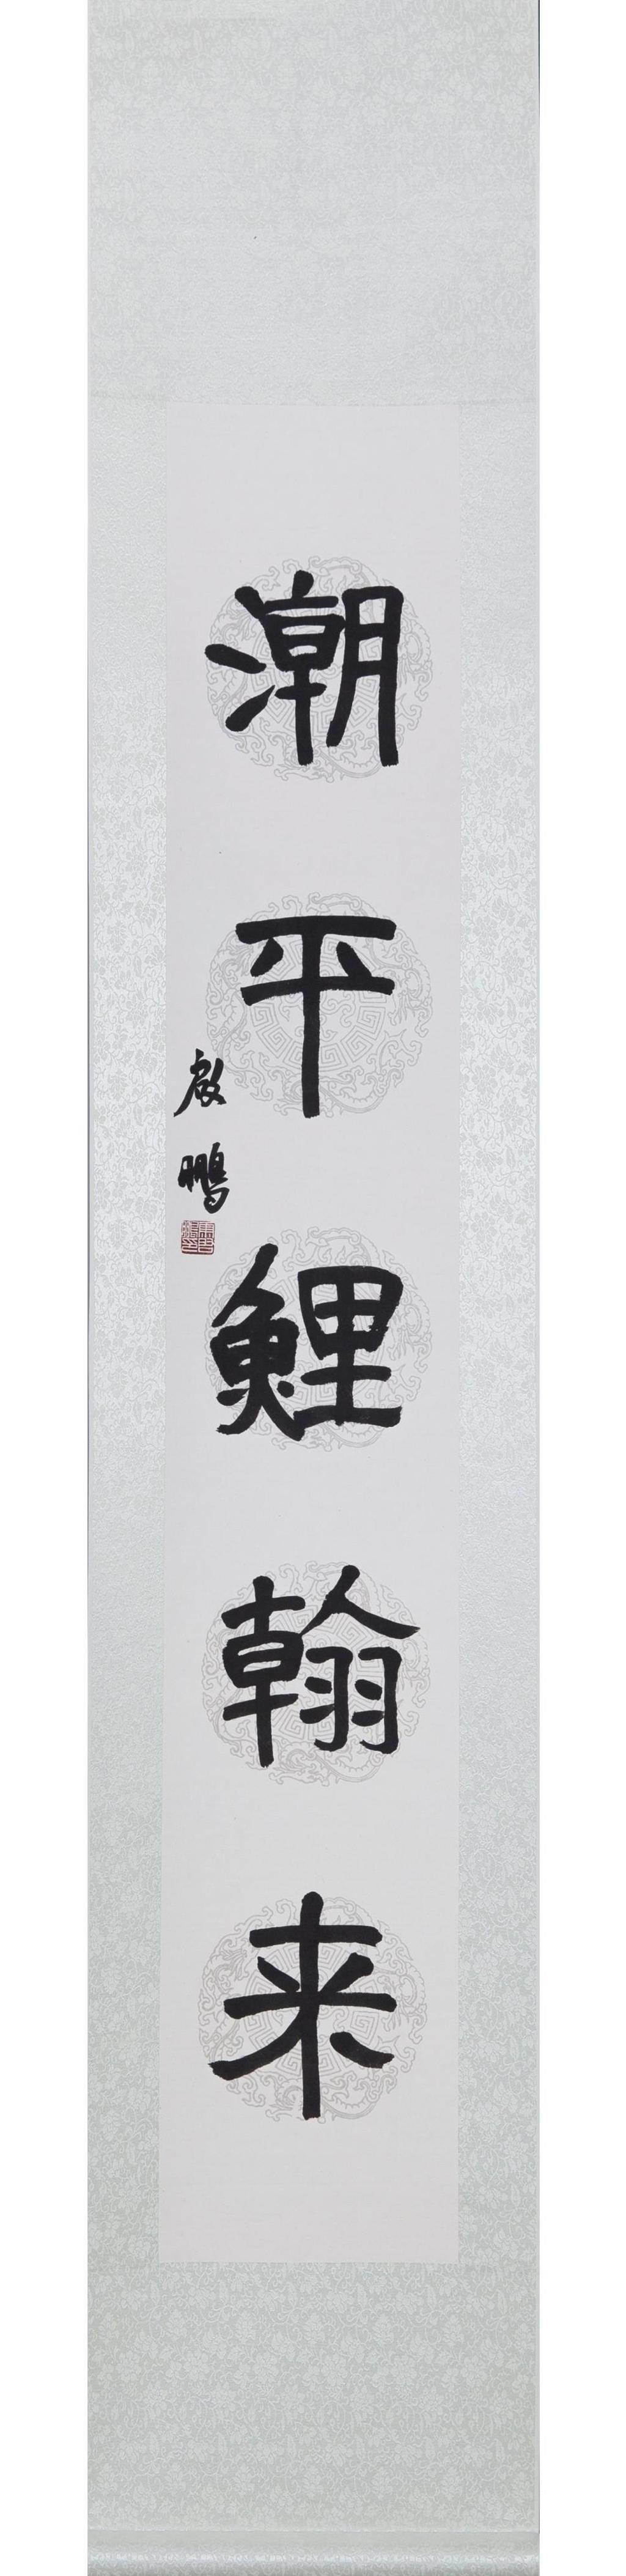 潮平鲤翰来
啟鵬